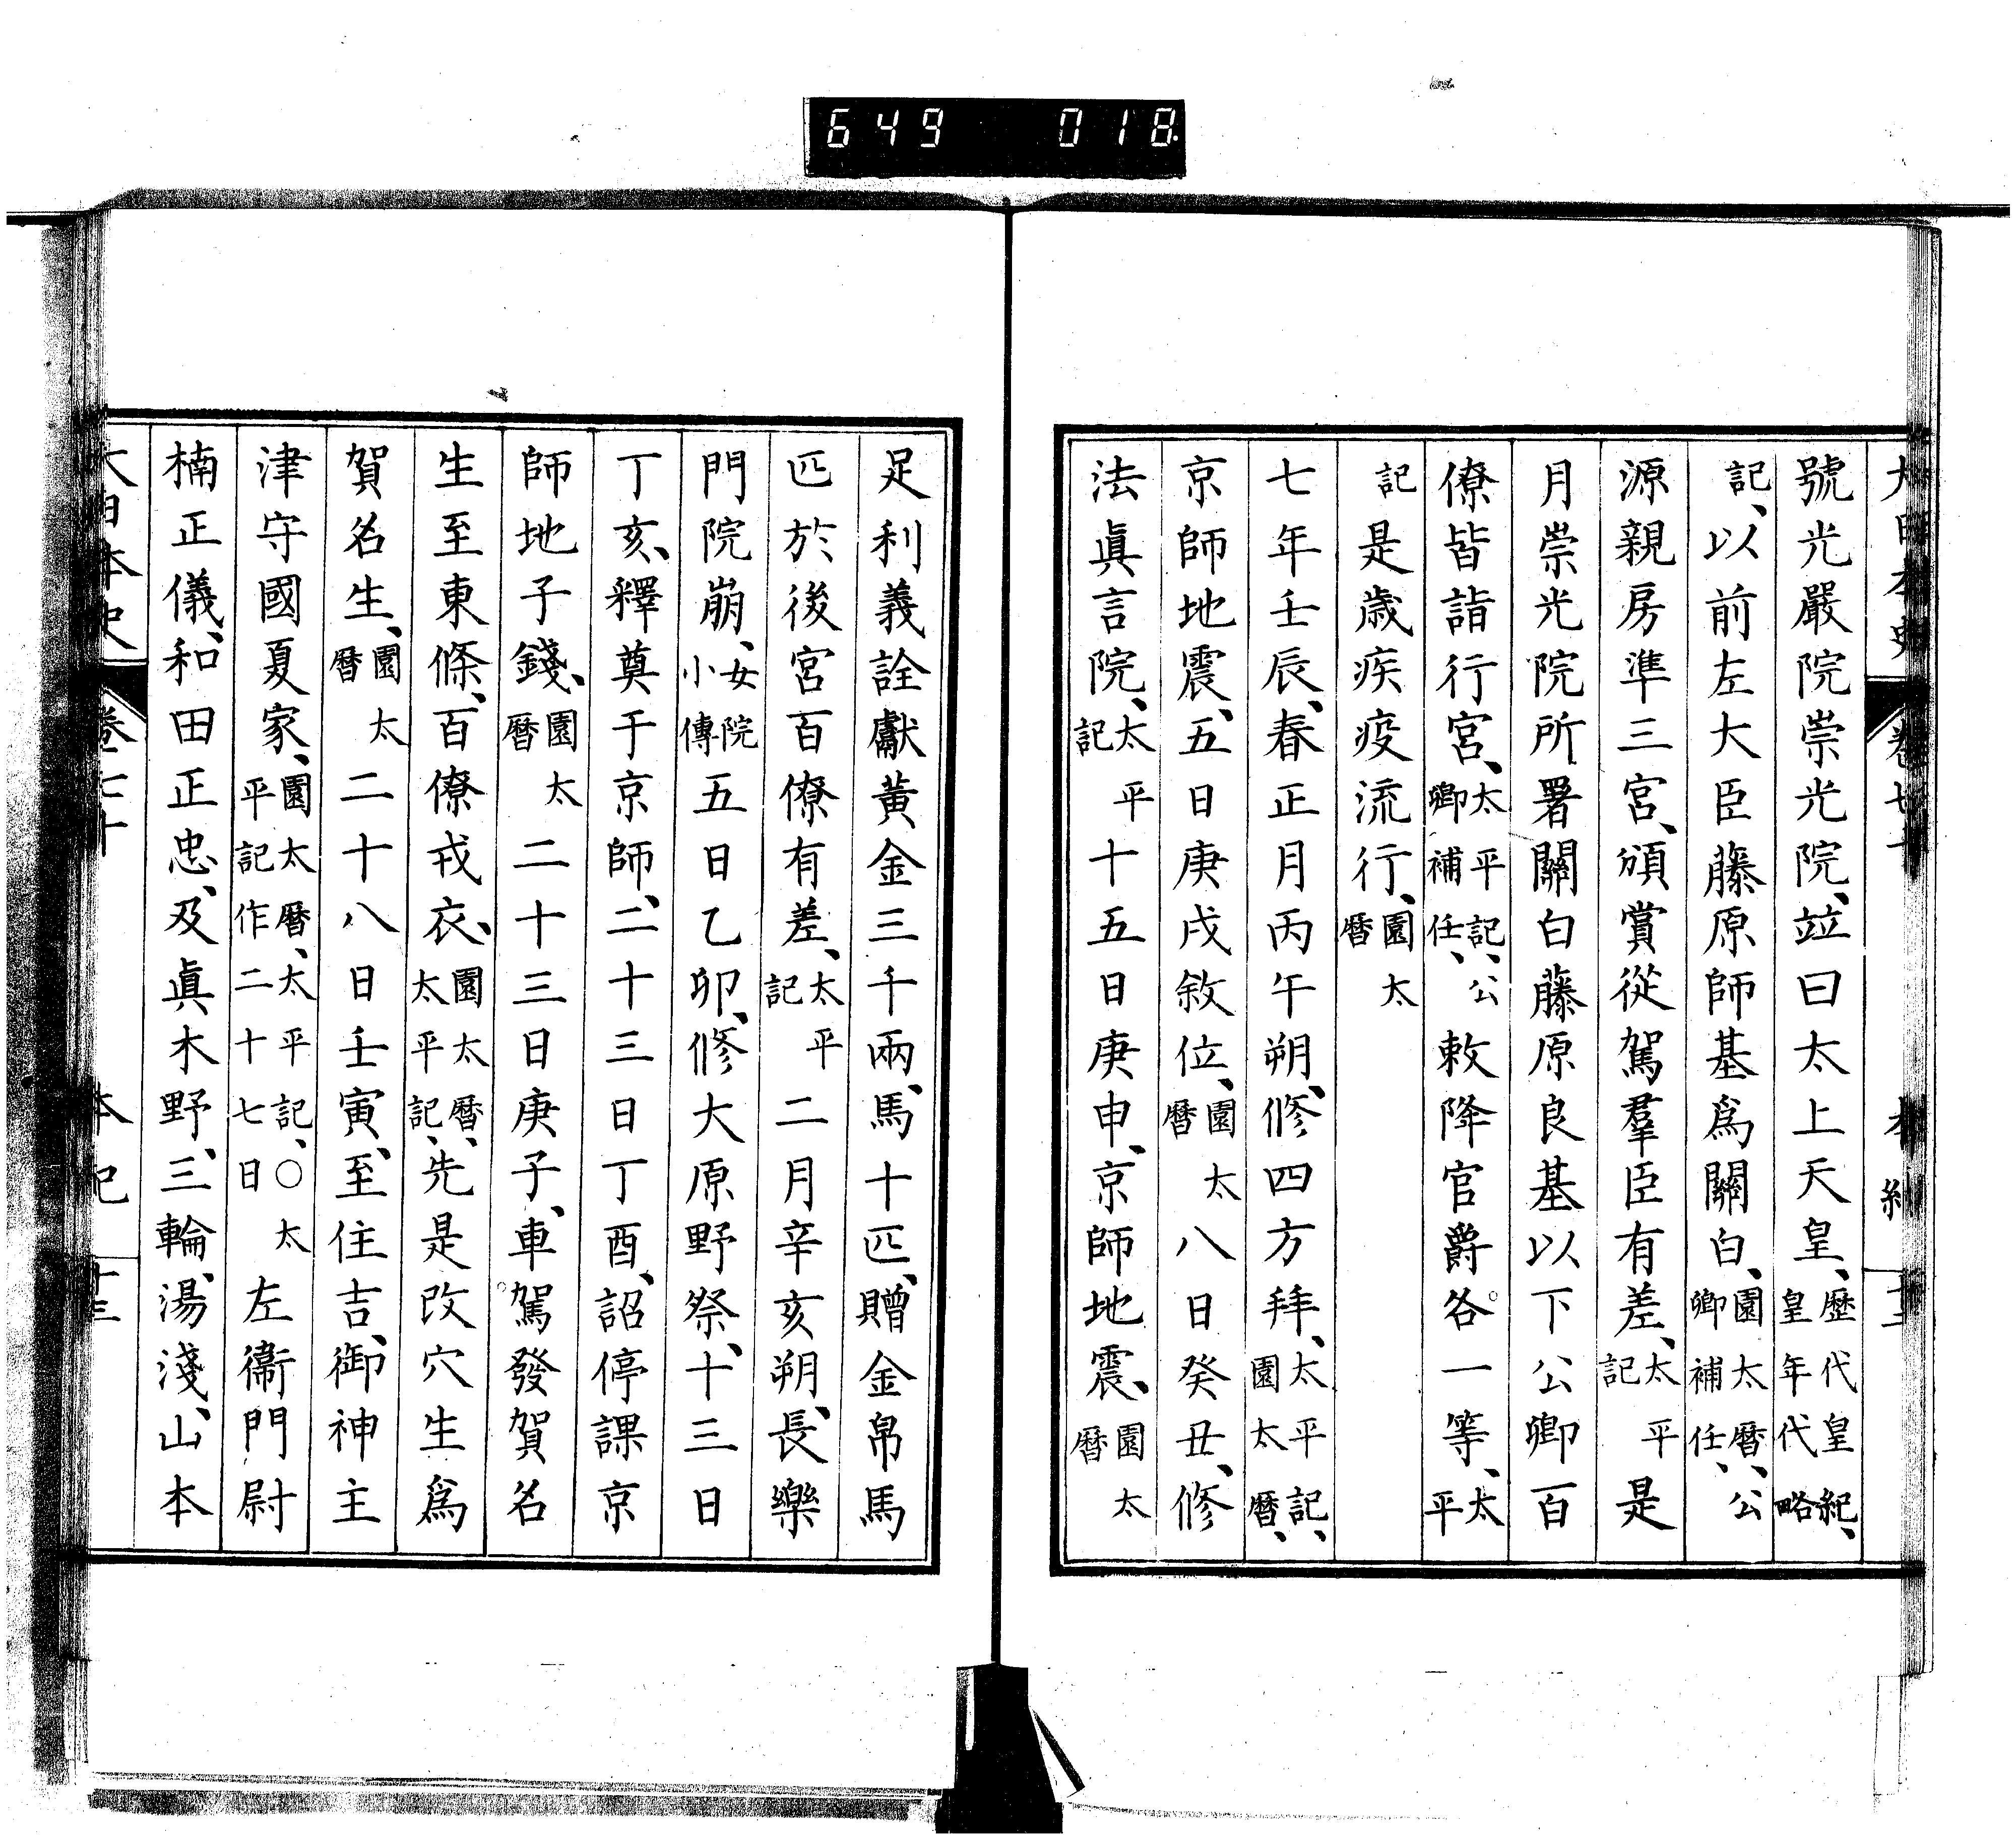 649 018
大日本史 卷七十 本紀 十二
號光嚴院崇光院、竝曰太上天皇、歷代皇紀、皇年代略
記、以前左大臣藤原師基爲關白、園太曆、公卿補任、
源親房準三宮、頒賞從駕羣臣有差、太平記是
月崇光院所署關白藤原良基以下公卿百
僚皆詣行宮、太平記、公卿補任、敕降官爵各一等、太平
記是歲疾疫流行、園太曆
七年壬辰、春正月丙午朔、修四方拜、太平記、園太曆、
京師地震、五日庚戌敘位、園太曆八日癸丑、修
法眞言院、太平記十五日庚申、京師地震、園太曆
足利義詮獻黃金三千兩、馬十匹、贈金帛馬
匹於後宮百僚有差、太平記二月辛亥朔、長樂
門院崩、女院小傳五日乙卯、修大原野祭、十三日
丁亥、釋奠于京師、二十三日丁酉、詔停課京
師地子錢、園太曆二十三日庚子、車駕發賀名
生至東條、百僚戎衣、園太曆、太平記、先是改穴生爲
賀名生、園太曆二十八日壬寅、至住吉、御神主
津守國夏家、園太曆、太平記、○太平記作二十七日左衞門尉
楠正儀、和田正忠、及眞木野、三輪、湯淺、山本
大日本史 卷七十 本紀 十三